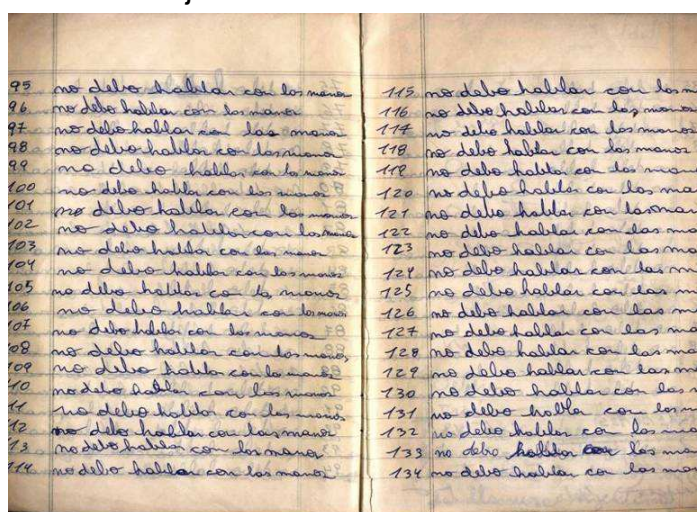 95 no debo hablar con las manos
96 no debo hablar con las manos
97 no debo hablar con las manos
98 no debo hablar con las manos
99 no debo hablar con las manos
100 no debo hablar con las manos
101 no debo hablar con las manos
102 no debo hablar con las manos
103 no debo hablar con las manos
104 no debo hablar con las manos
105 no debo hablar con las manos
106 no debo hablar con las manos
107 no debo hablar con las manos
08 no debo hablar con las manos
109 no debo hablar con las manos
10 no debo hablar con las manos
11 no debo hablar con las manos
12 no debo hablar con las manos
13 no debo hablar con las manos
114 no debo hablar con las manos
115 no debo hablar con las m
116 no debo hablar con las manos
117 no debo hablar con las manos
118 no debo hablar con las manos
119 no debo hablar con las man
120 no debo hablar con las ma
121 no debo hablar con las mas
122 no debo hablar con las ma
123 no debo hablar con las ma
124 no debo hablar con las ma
125 no debo hablar con las m
126 no debo hablar con las m
127 no debo hablar con las m
128 no debo hablar con las ma
129 no debo hablar con las ma
130 no debo hablar con las
131 no debo habla con las m
132 no debo hablar con las ma
133 no debo hablar con las ma
134 no debo hablar con las ma